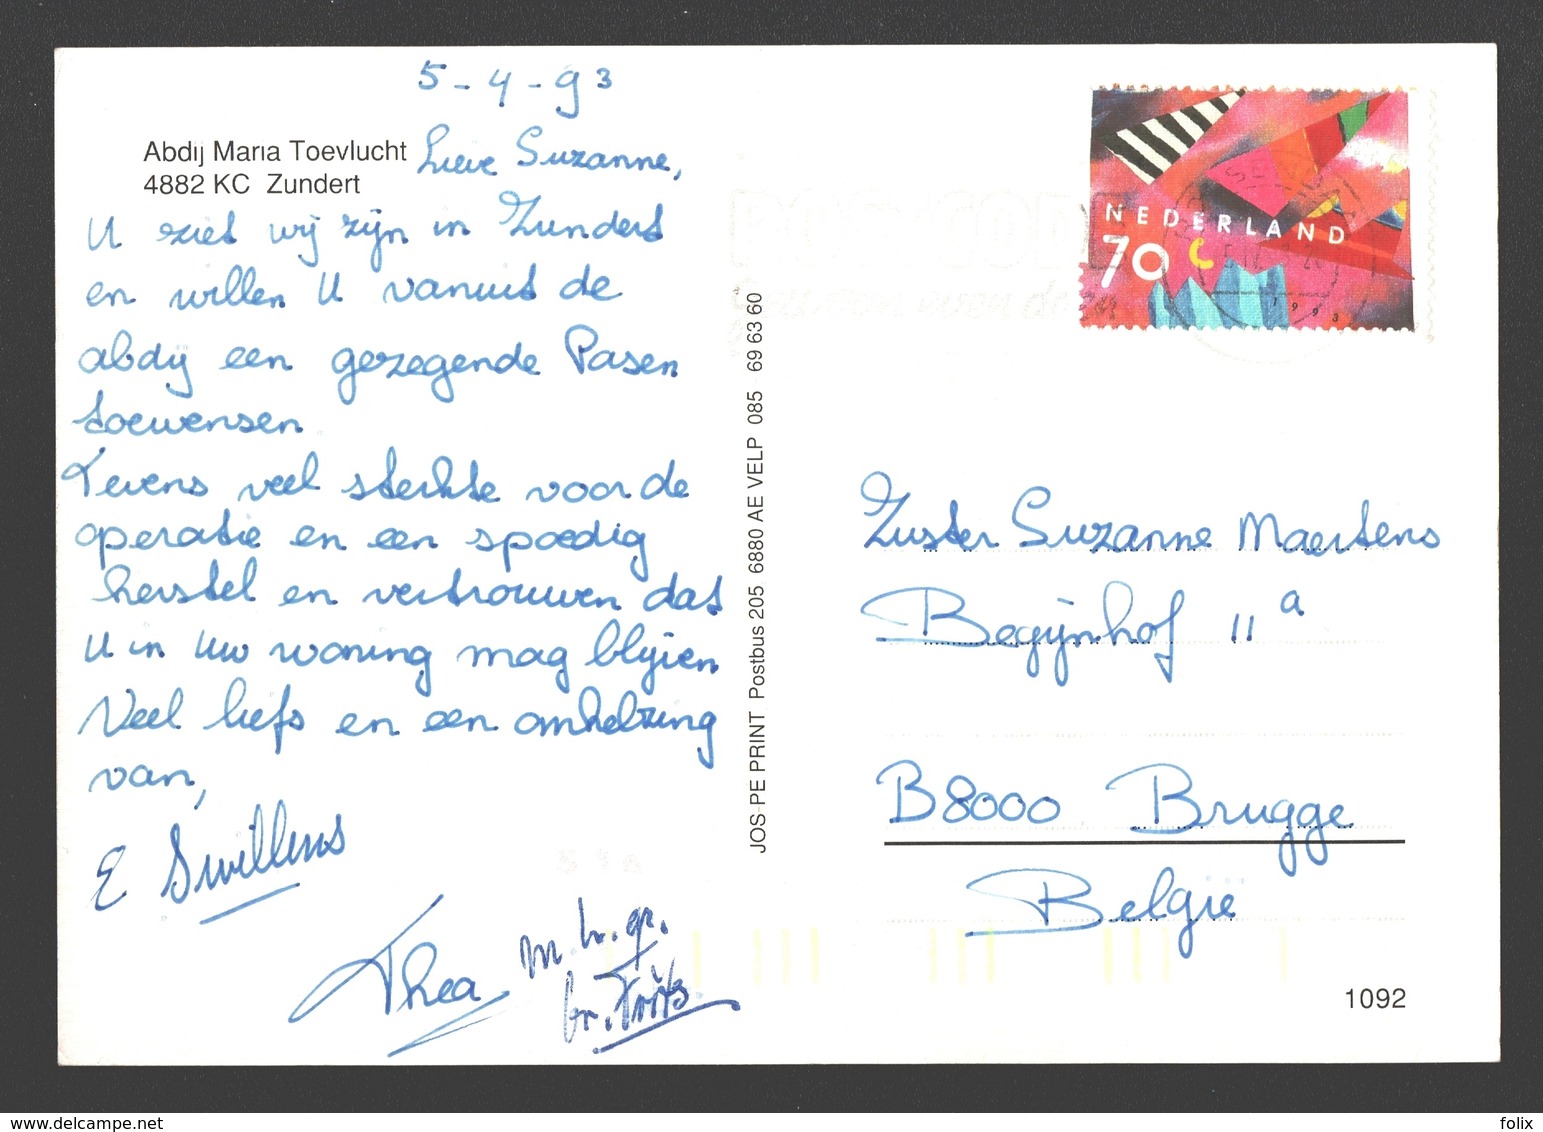 5-4-93
Abdij Maria Toevlucht
4882 KC Zundert
Lieve Suzanne,
U ziet wij zijn in Zundert
en willen U vanuit de
abdij een gezegende Pasen
toewensen
Tevens veel sterkte voor de
operatie en een spoedig
herstel en vertrouwen dat
U in uw woning mag blijven
Veel liefs en een omhelzing
van,
E Swillens
Thea
m.h.gr.
br. Frits
JOS-PE PRINT Postbus 205 6880 AE VELP 085 69 63 60
NEDERLAND
70 c
1993
POSTCODE
Zuster Suzanne Maertens
Begijnhof 11a
B8000 Brugge
België
1092
delcampe.net
folix